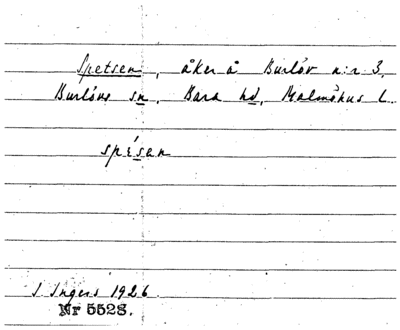 Spetsen, åker å Burlöv n:r 3,
Burlövs sn, Bara hd, Malmöhus l.
spésen
I. Ingers 1926.
Nr 5528.